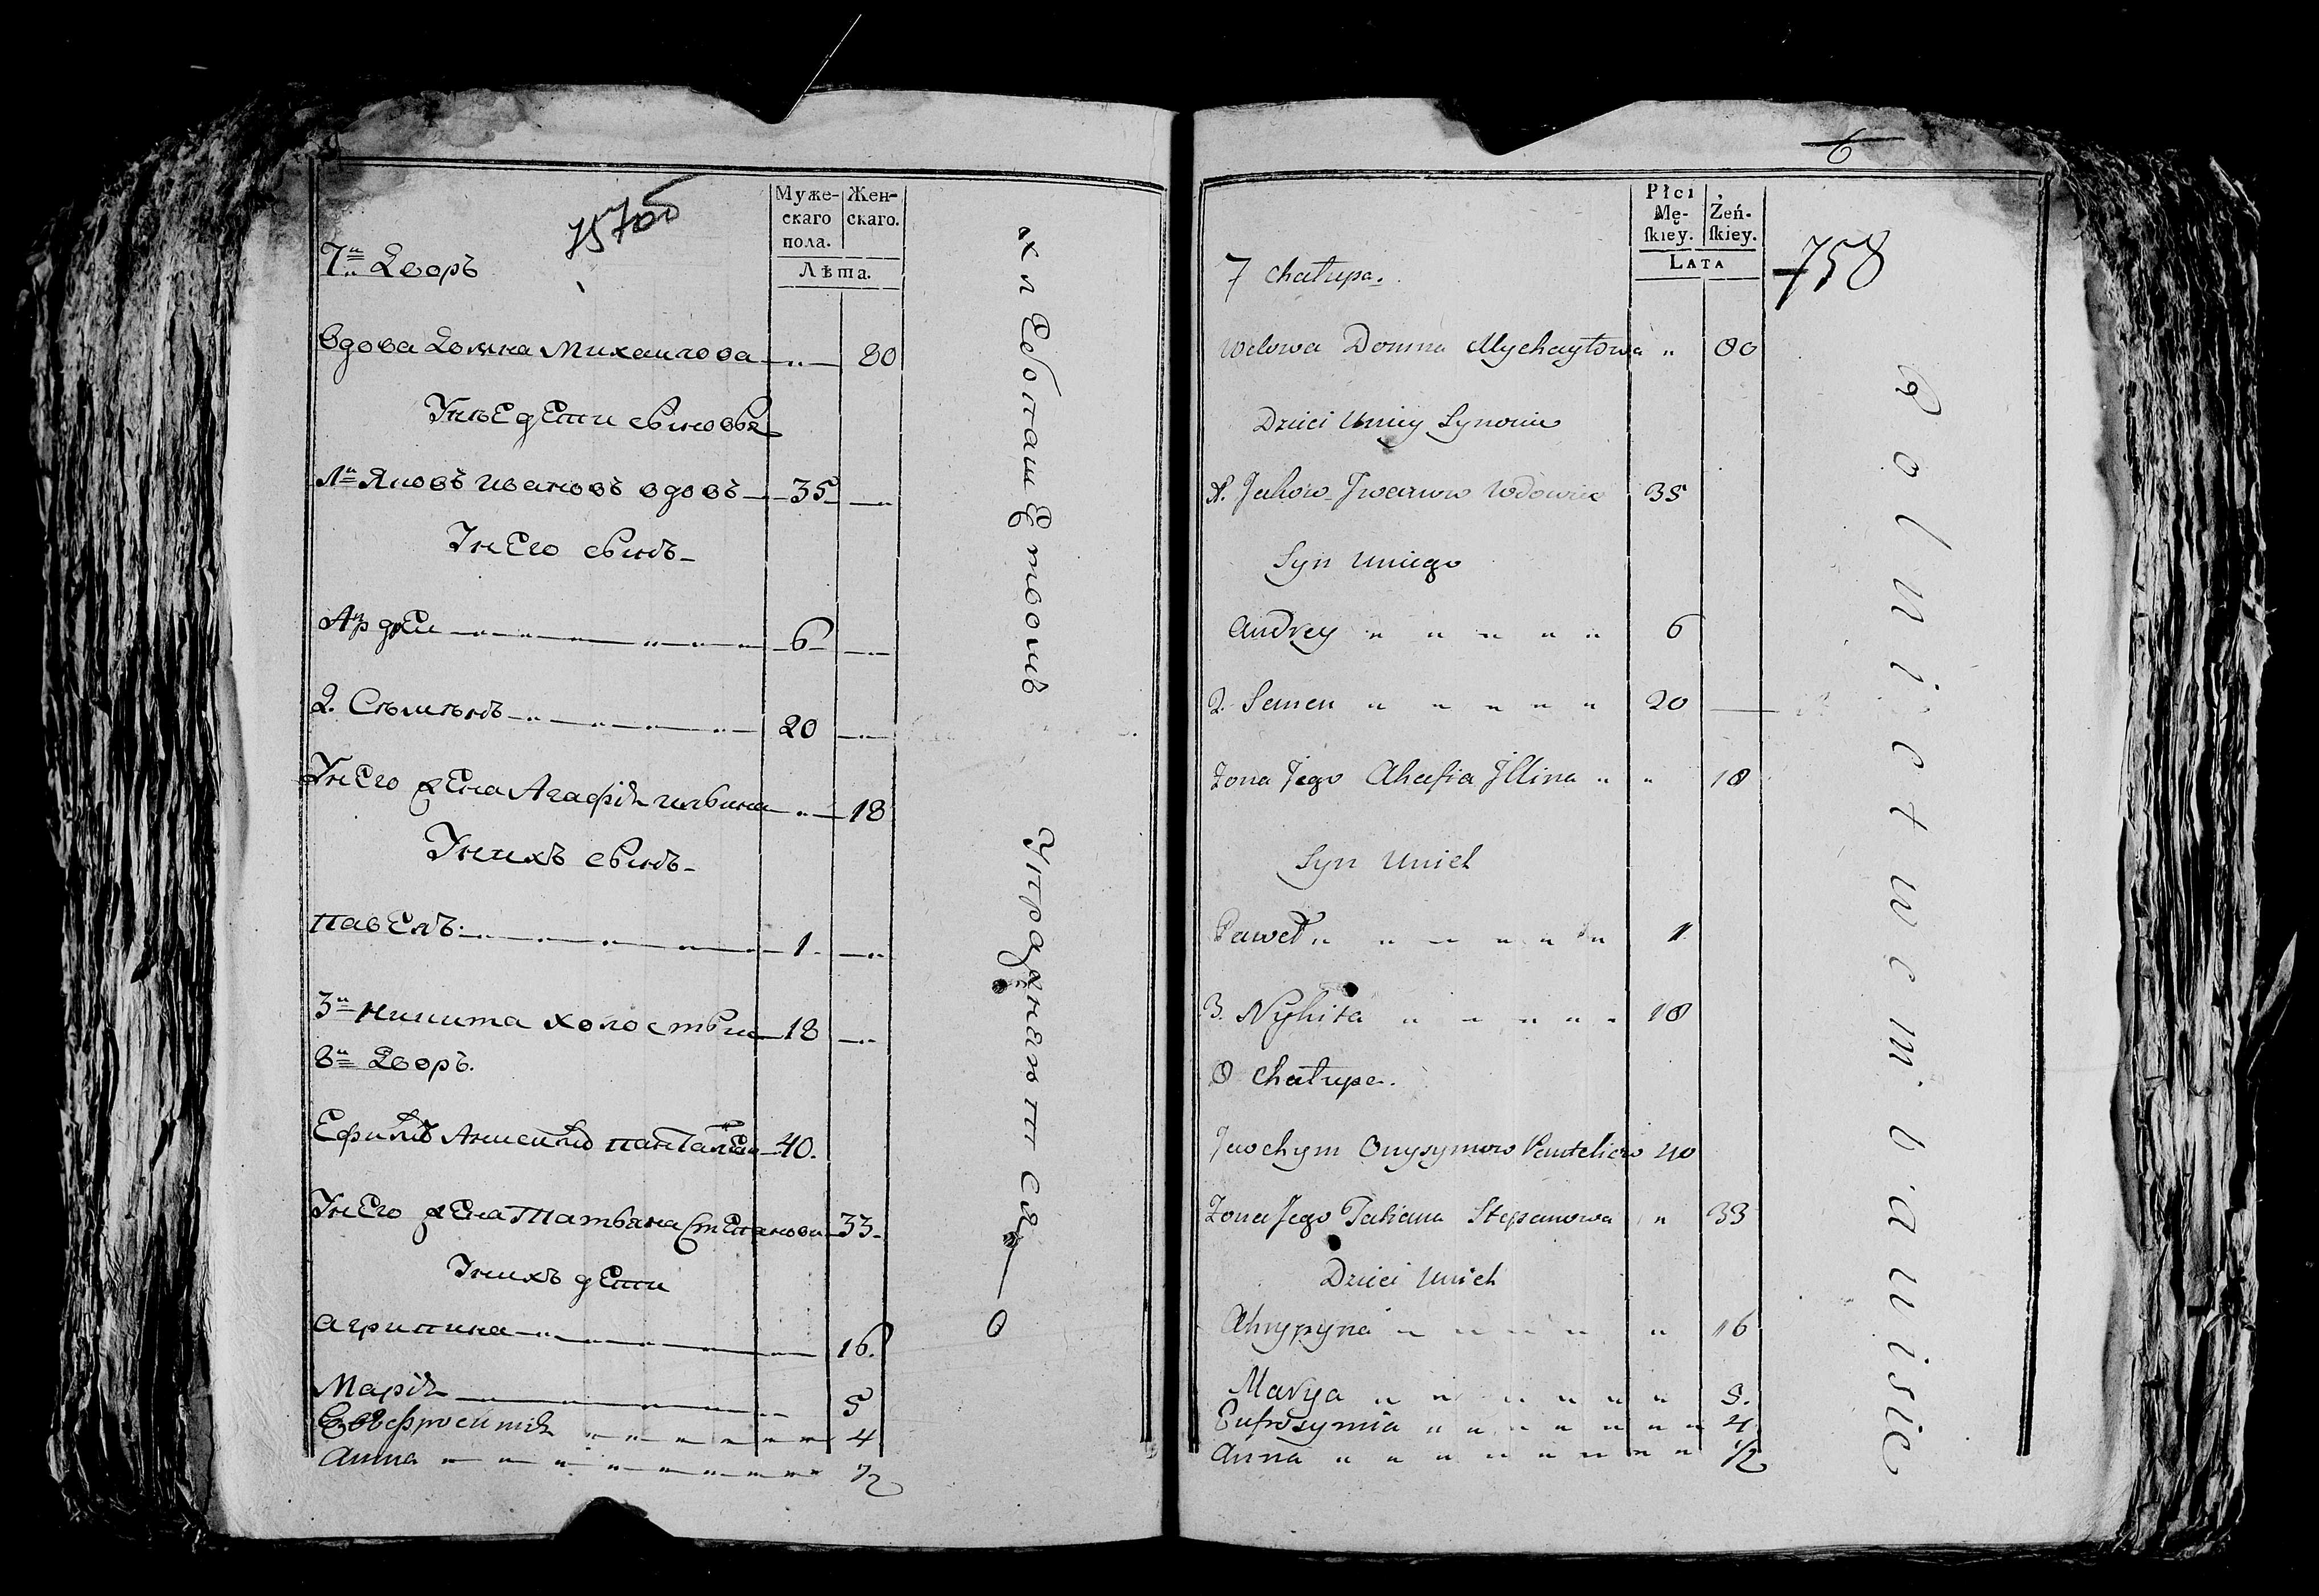 757об
Муже-
скаго
пола.
Жен-
скаго.
Лѣта.
7й Дворъ
вдова Домна Михаилова 80
Унѣе дети сыновья
1й Яковъ ивановъ вдовъ 35
Унего сынъ
Андреи 6
2. Сѣмѣнъ 20
Унего жена Агафія ильина 18
Унихъ сынъ
павелъ 1
3й никита холостыи 18
8й Дворъ.
Ефимъ 40.
Унего жена Татьяна Степанова 33
Унихъ дети
агрипина 16.
Марія 5
4
анна 1/2
хлебопашетвомъ упражняются
6
758
Płci
Mę-
ſkiey.
Żeń-
ſkiey.
Lata
7 chałupa.
Wdowa Domna Mychayłowa " 80
Dzieci Uniey Synowie
1. Jakow Iwanow Wdowiec 35
Syn Uniego
Andrey 6
2. Semen 20
Zona Jego Ahafia Jllina 18
Syn Unich
Paweł 1
3. Nykita 18
8 chałupa.
Jwchym Onysymow Pantelicio 40
Zona Jego Tatiana Stepanowa " 33
Dzieci Unich
Ahrypyna 16
Marya 5.
Eufrosymia 4
Anna 1/2
Rolnictwem bawisic